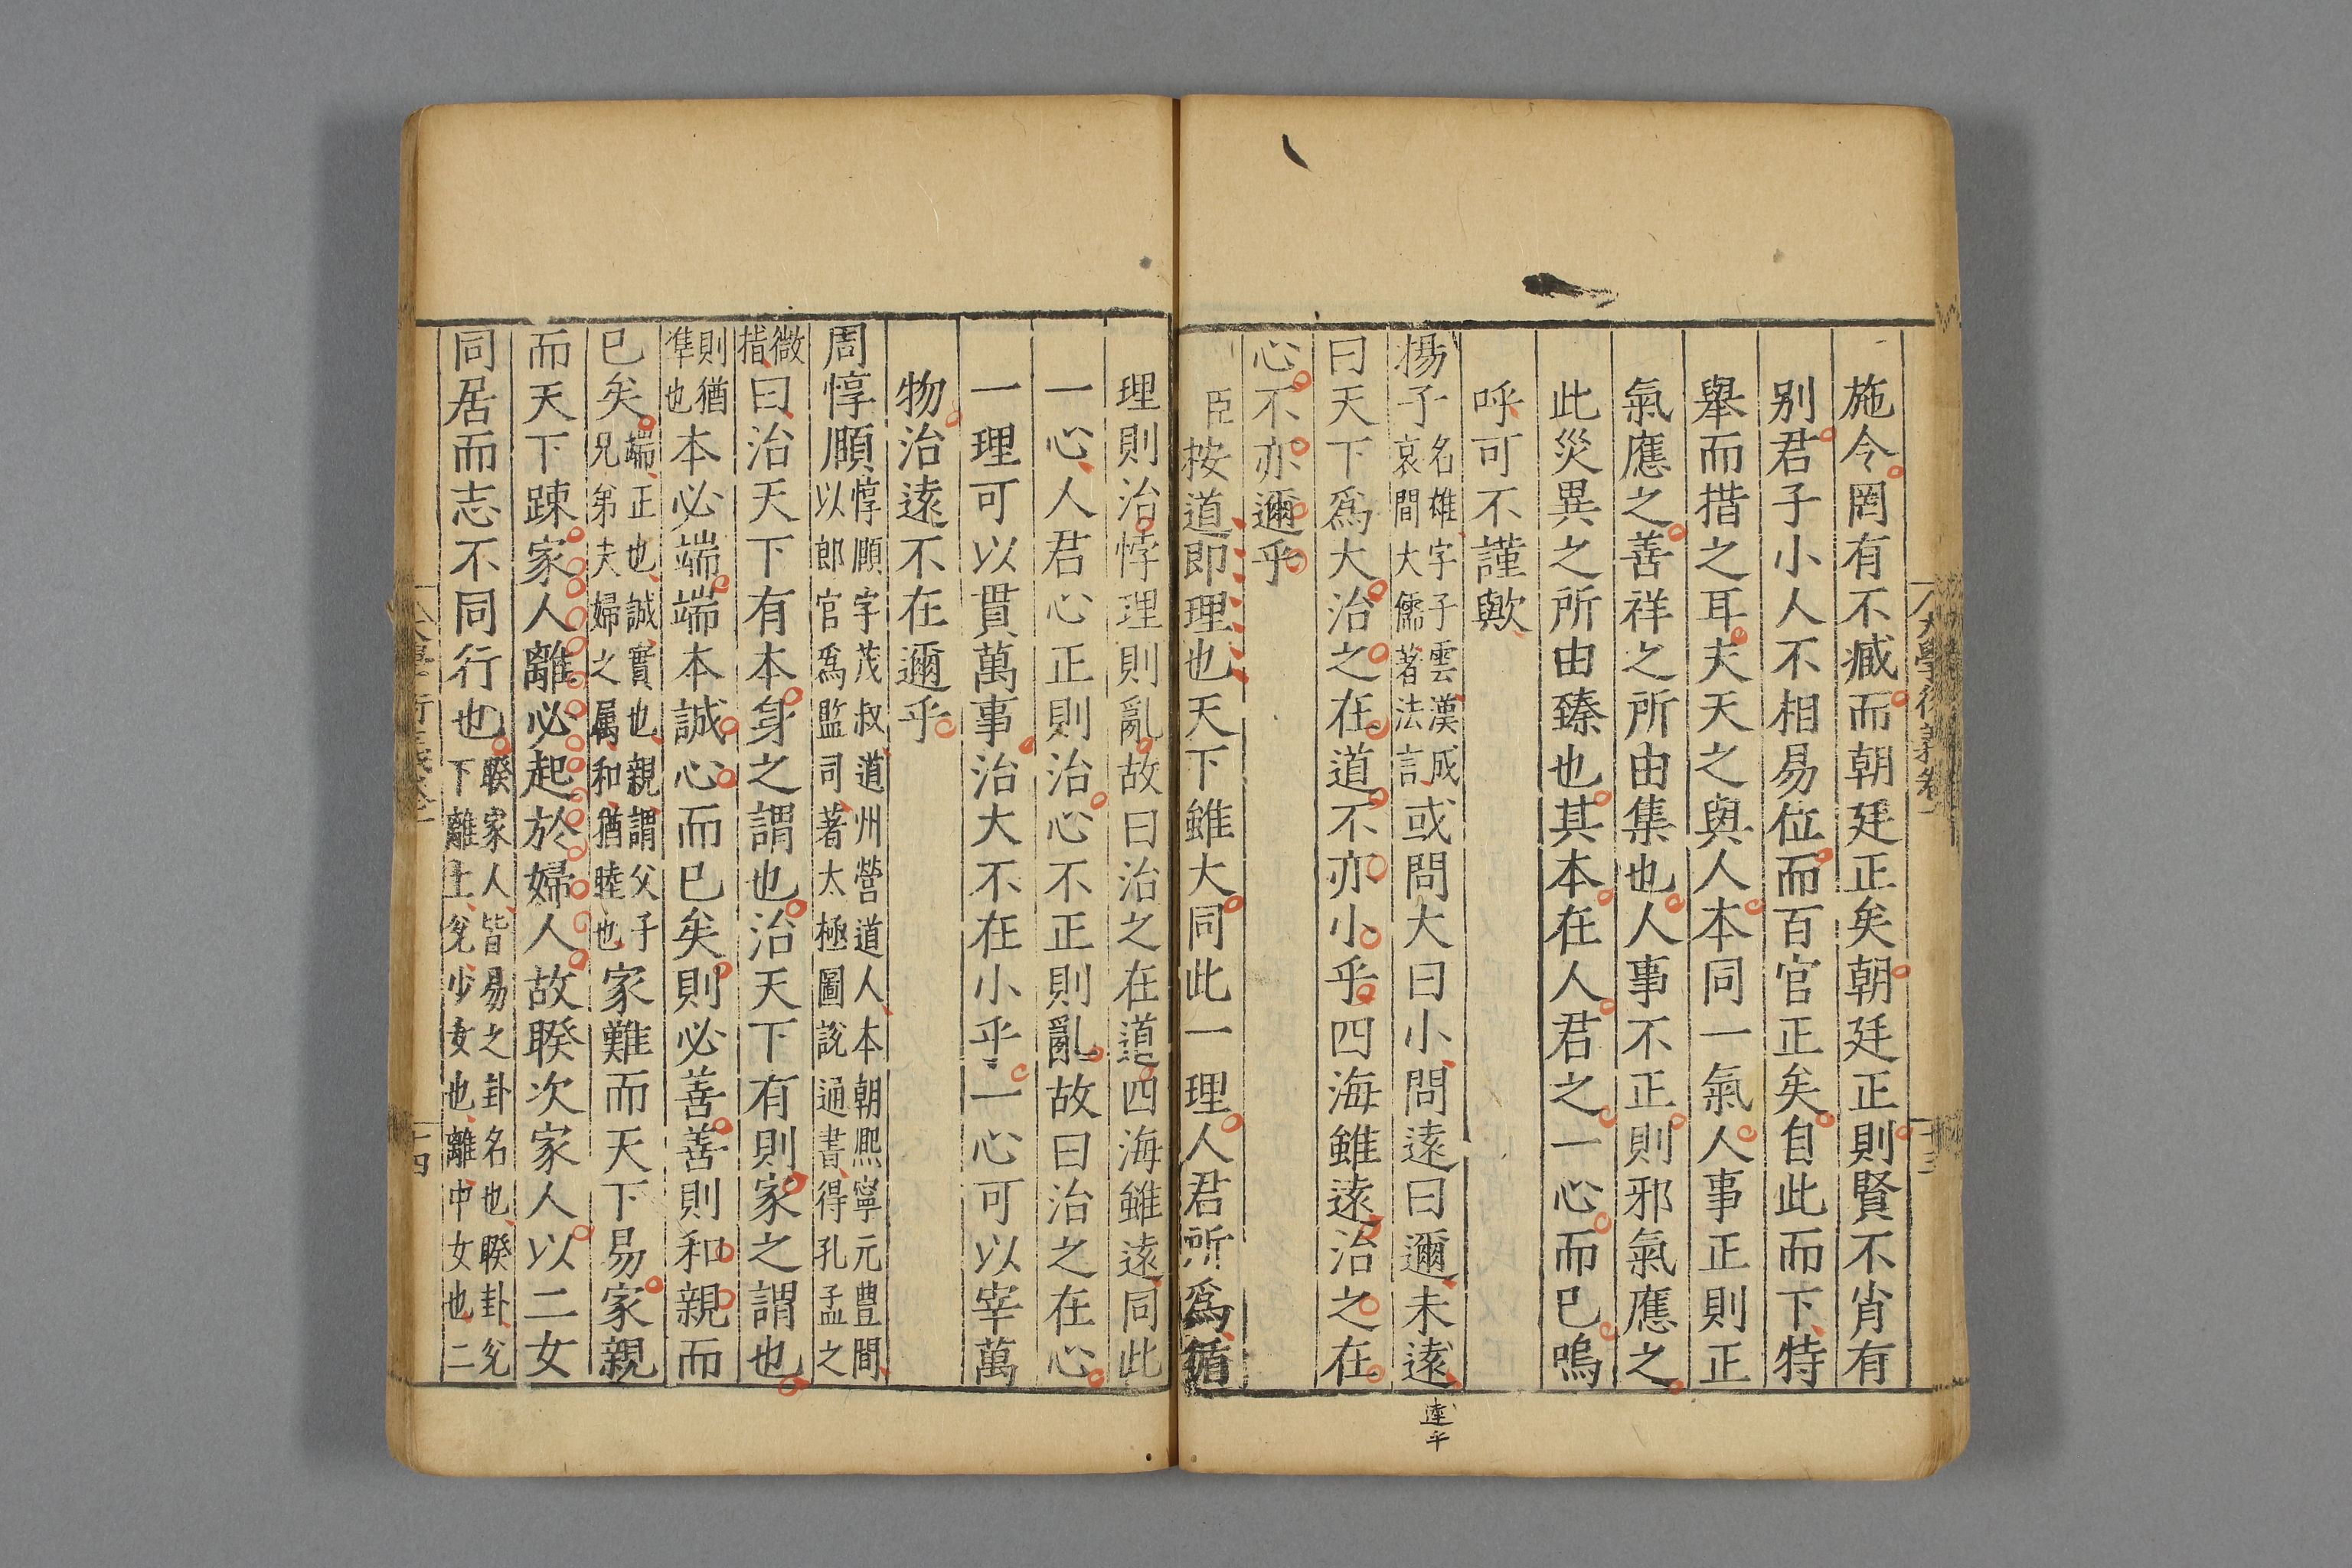 施令罔有不臧而朝廷正矣朝廷正則賢不肖有
别君子小人不相易位而百官正矣自此而下特
舉而措之耳夫天之與人本同一氣人事正則正
氣應之善祥之所由集也人事不正則邪氣應之
此災異之所由臻也其本在人君之一心而已嗚
呼可不謹歟
揚子名雄字子雲漢成哀間大儒著法言或問大曰小問遠曰邇未達
曰天下爲大治之在道不亦小乎四海雖遠治之在
心不亦邇乎
臣按道即理也天下雖大同此一理人君所爲循
理則治悖理則亂故曰治之在道四海雖遠同此
一心人君心正則治心不正則亂故曰治之在心
一理可以貫萬事治大不在小乎一心可以宰萬
物治遠不在邇乎
周惇頤惇頤字茂叔道州營道人本朝熈寧元豊間以郎官爲監司著太極圖說通書得孔孟之
微指曰治天下有本身之謂也治天下有則家之謂也
則猶準也本必端端本誠心而已矣則必善善則和親而
已矣端正也誠實也親謂父子兄弟夫婦之属和猶睦也家難而天下易家親
而天下踈家人離必起於婦人故睽次家人以二女
同居而志不同行也睽家人皆易之卦名也睽卦兊下離上兊少女也離中女也二
大學衍義卷一
十三
十四
達平